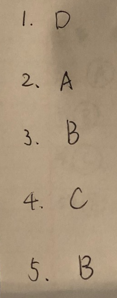 1. D
2、 A
3. B
4. C
5. B